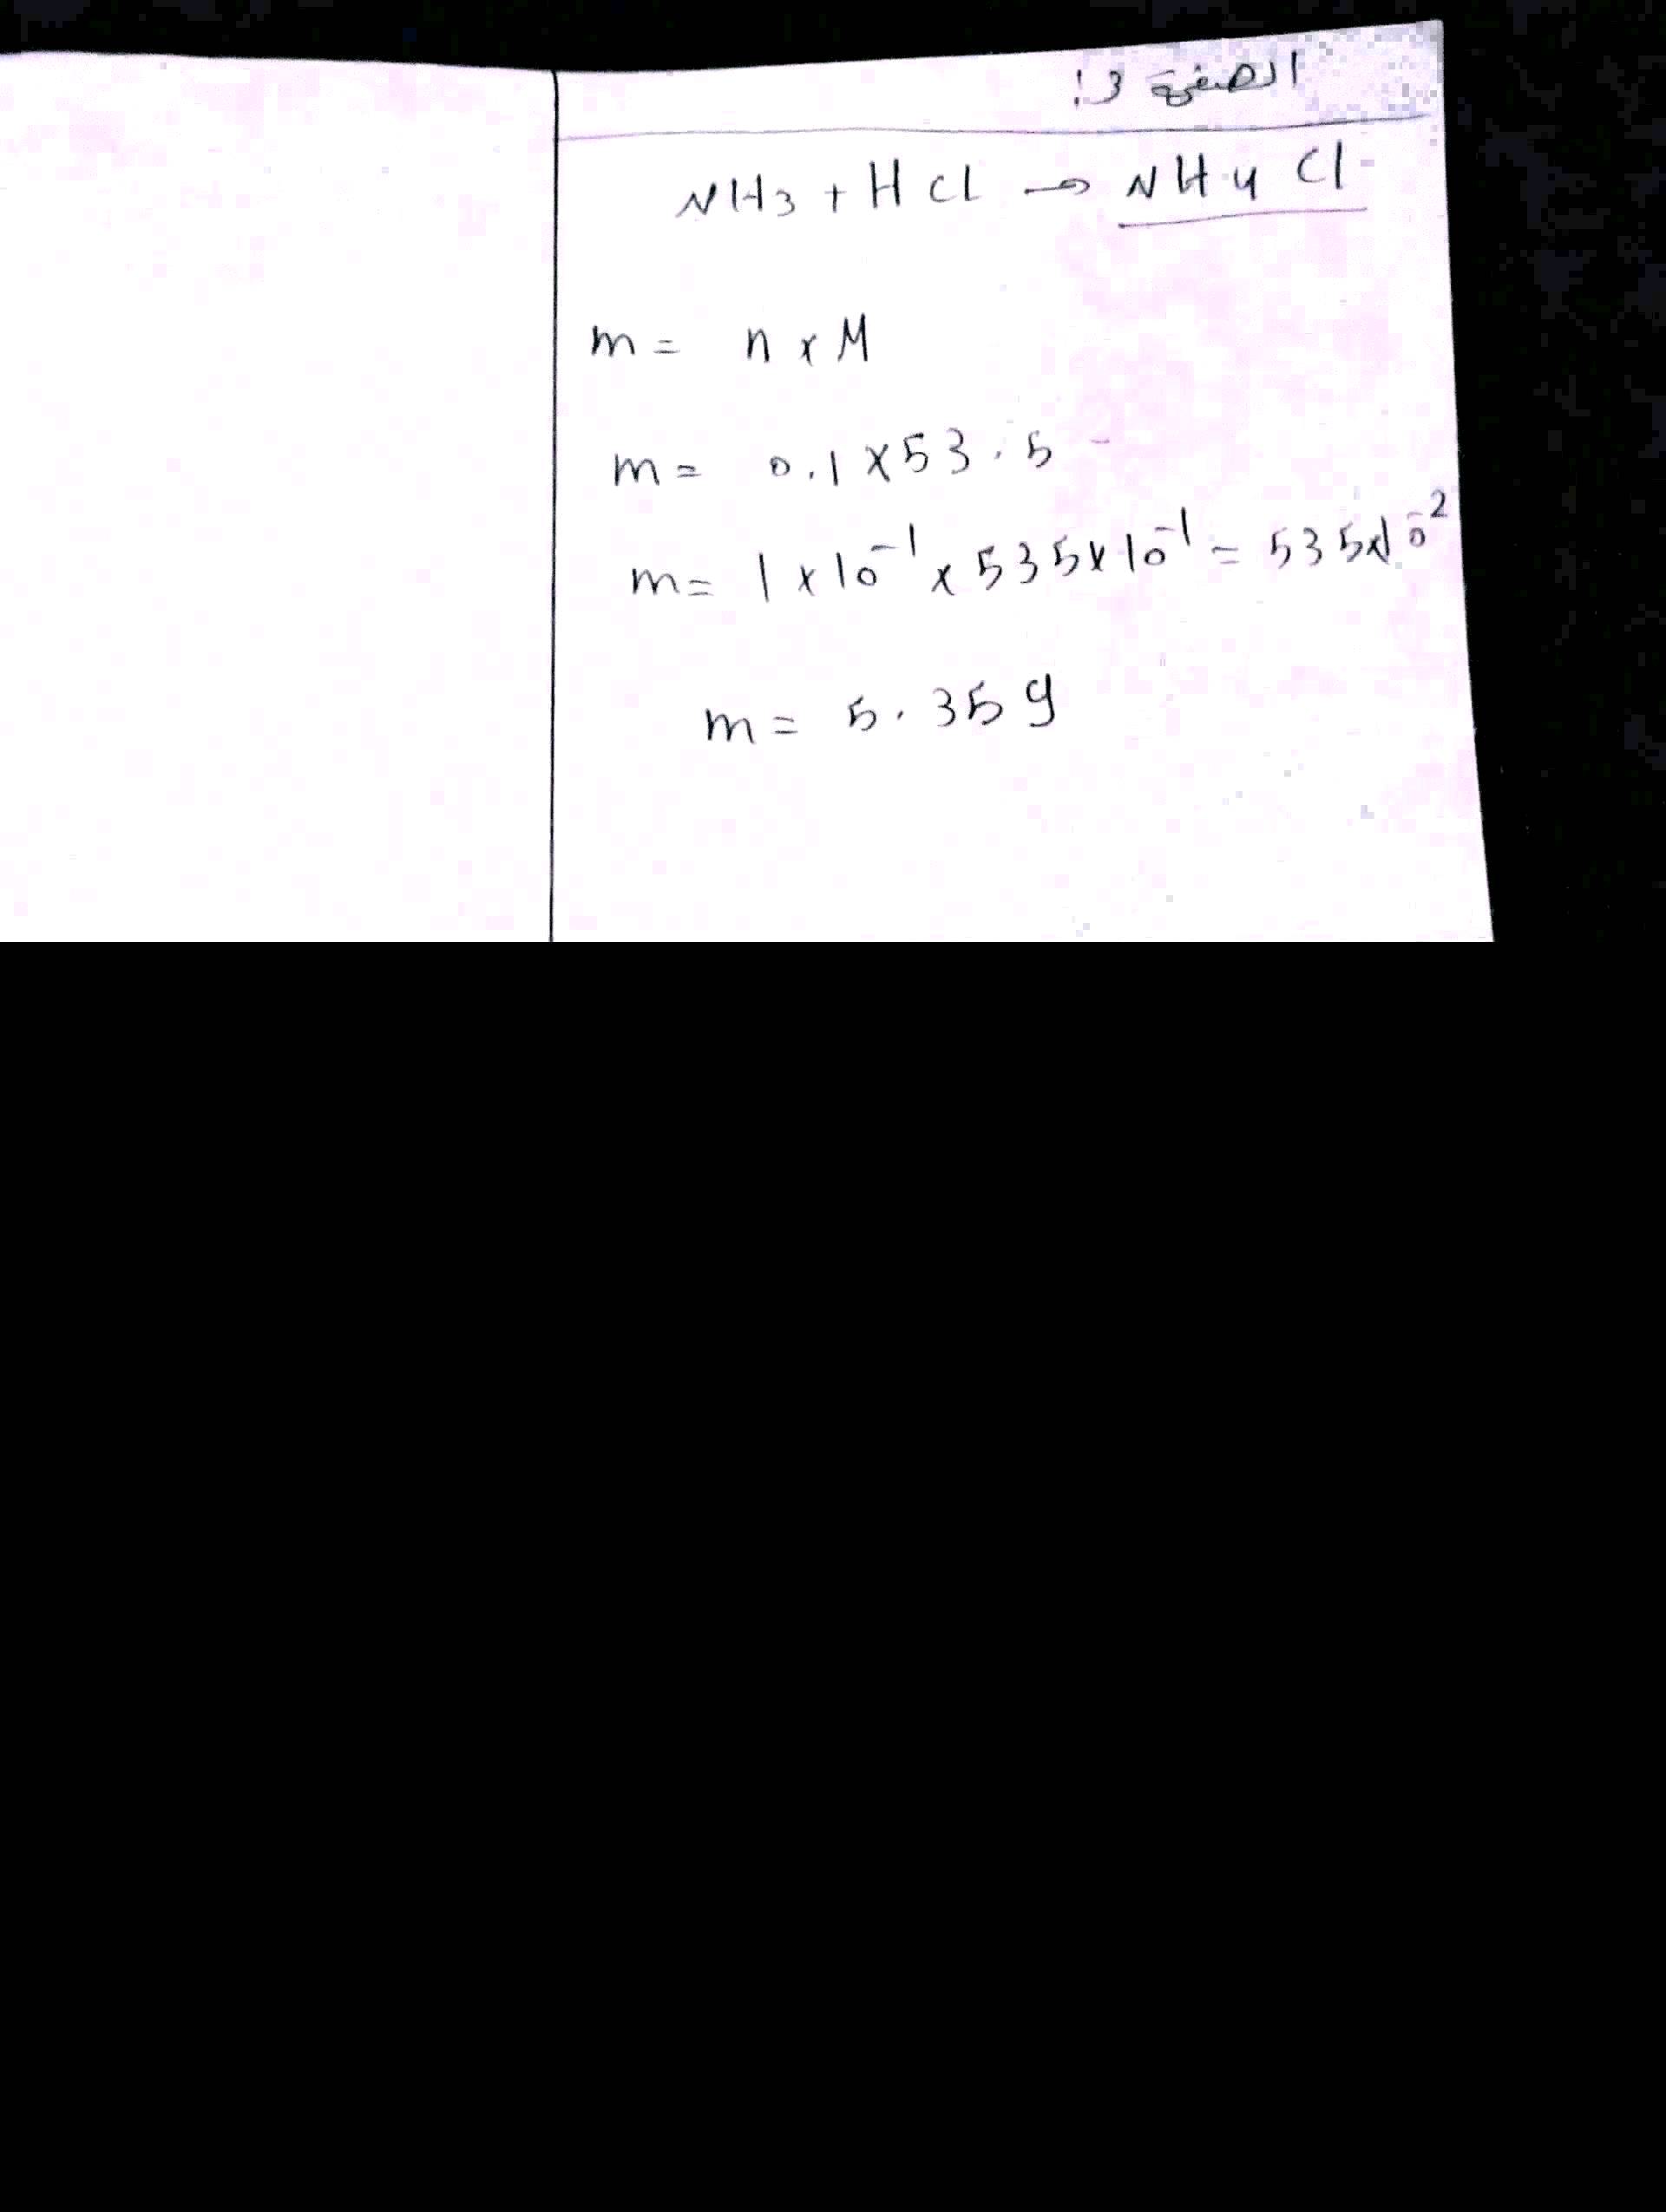 الصفحة 3:
NH3 + HCl → NH4 Cl
m = n x M
m = 0.1 x 53.5
m = 1 x 10⁻¹ x 535 x 10⁻¹ = 535 x 10⁻²
m = 5.35 g